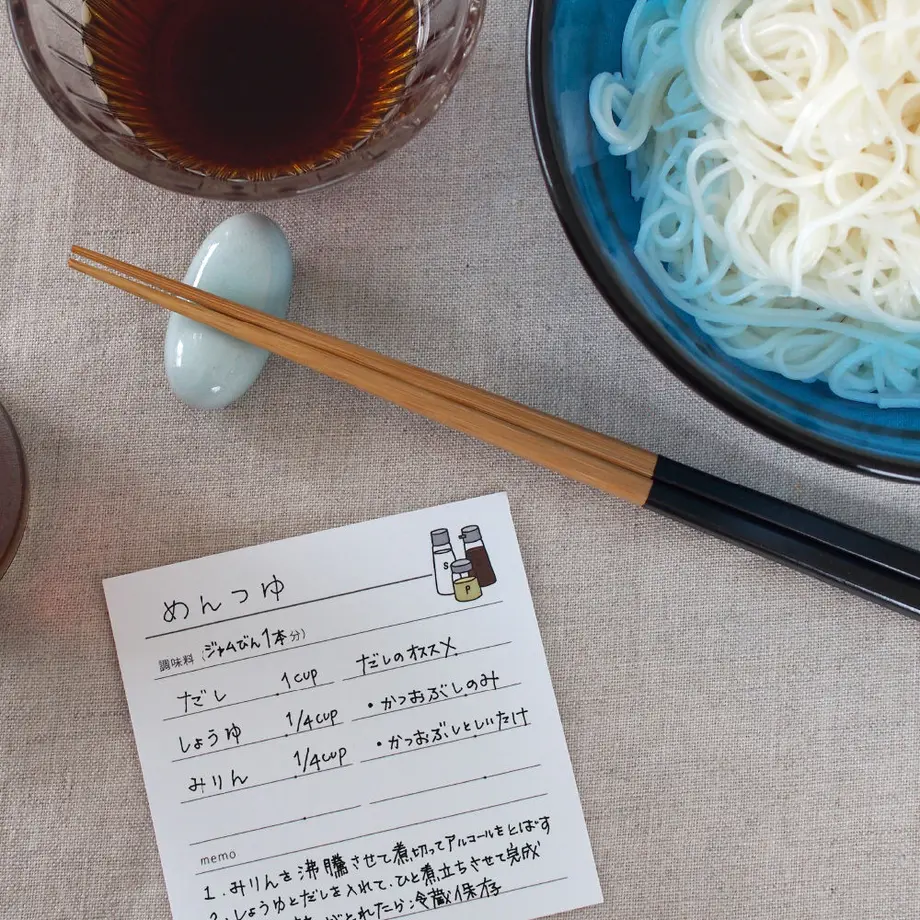 めんつゆ
S
P
調味料 (ジャムびん1本分)
だし 1cup だしのオススメ
しょうゆ 1/4cup ・かつおぶしのみ
みりん 1/4cup ・かつおぶしとしいたけ
memo
1. みりんを沸騰させて煮切ってアルコールをとばす
2. しょうゆとだしを入れて、ひと煮立ちさせて完成
がとれたら冷蔵保存